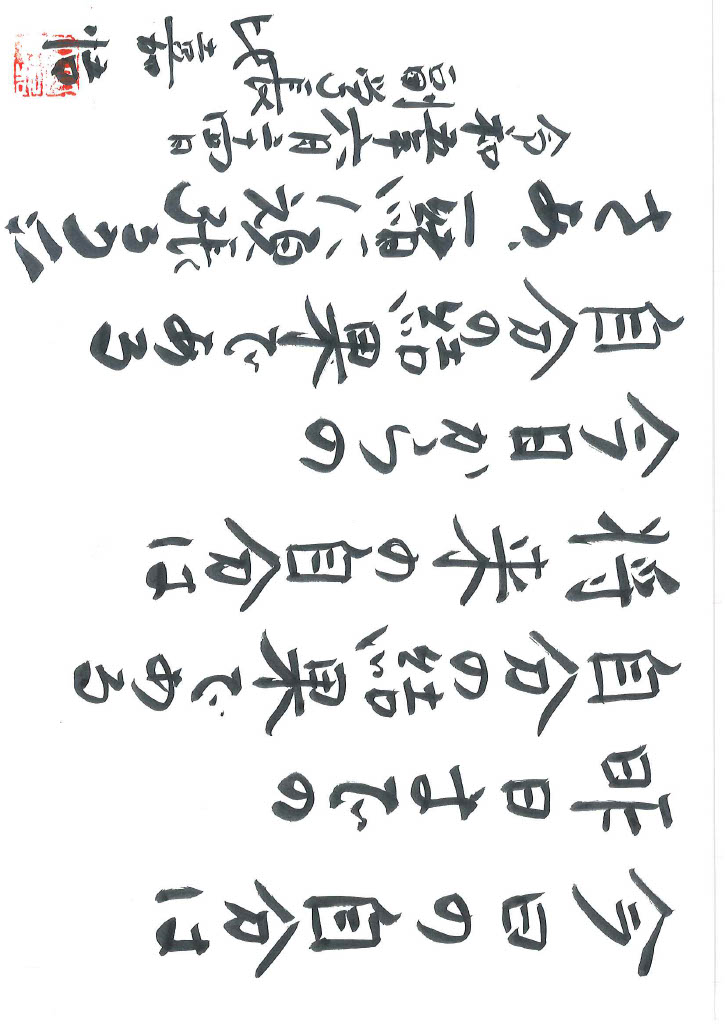 今日の自分は
昨日までの
自分の結果である
将来の自分は
今日からの
自分の結果である
さあ、一緒に頑張ろう!!
令和五年六月二十四日
副学長
比嘉 悟